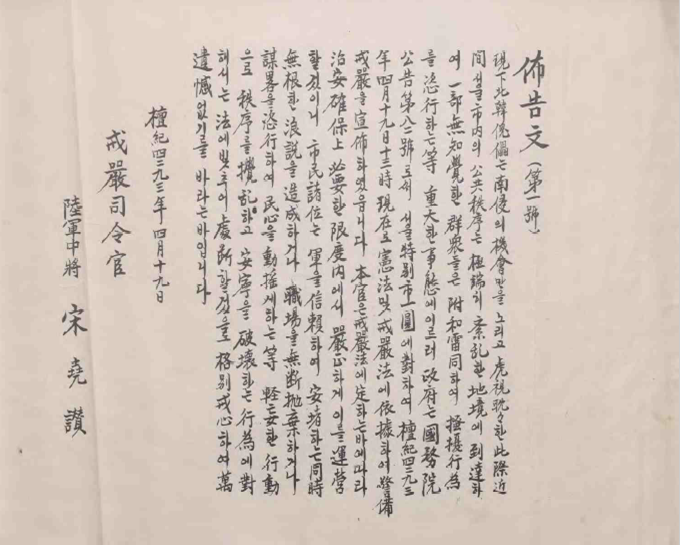 佈告文(第一號)
現下北韓傀儡는 南侵의 機會만을 노리고 虎視耽々한 此際 近
間 서울市内의 公共秩序는 極端히 紊乱한 地境에 到達하
여 一部 無知覺한 群衆들은 附和雷同하여 擾行爲
를 恣行하는等 重大한 事態에 이르러 政府는 國務院
公告 第八二號로써 서울特别市一圓에 對하여 檀紀四二九三
年四月十九日十三時 現在로 憲法및 戒嚴法에 依據하여 警備
戒嚴을 宣佈하였음니다 本官은 戒嚴法에 定하는바에 따라
治安確保上 必要한 限度内에서 嚴正하게 이를 運営
할것이니 市民諸位는 軍을 信頼하여 安堵하는 同時
無根한 浪説을 造成하거나 職場을 無断抛棄하거나
謀畧을 恣行하여 民心을 動揺케하는等 軽妄한 行動
으로 秩序를 攪乱하고 安寧을 破壊하는 行為에 對
해서는 法에 빛추어 處断할것을 格别戒心하여 萬
遺憾없기를 바라는바입니다
檀紀四二九三年四月十九日
戒嚴司令官
陸軍中將 宋堯讚